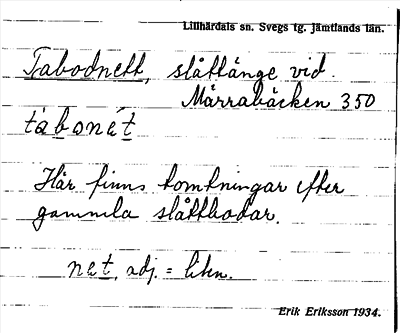 Lillhärdals sn. Svegs tg. Jämtlands län.
Tabodnett, slåttänge vid
Mårrabäcken 350
tàbonét
Här finns tomtningar efter
gammla slåttbodar.
net, adj. = liten.
Erik Eriksson 1934.